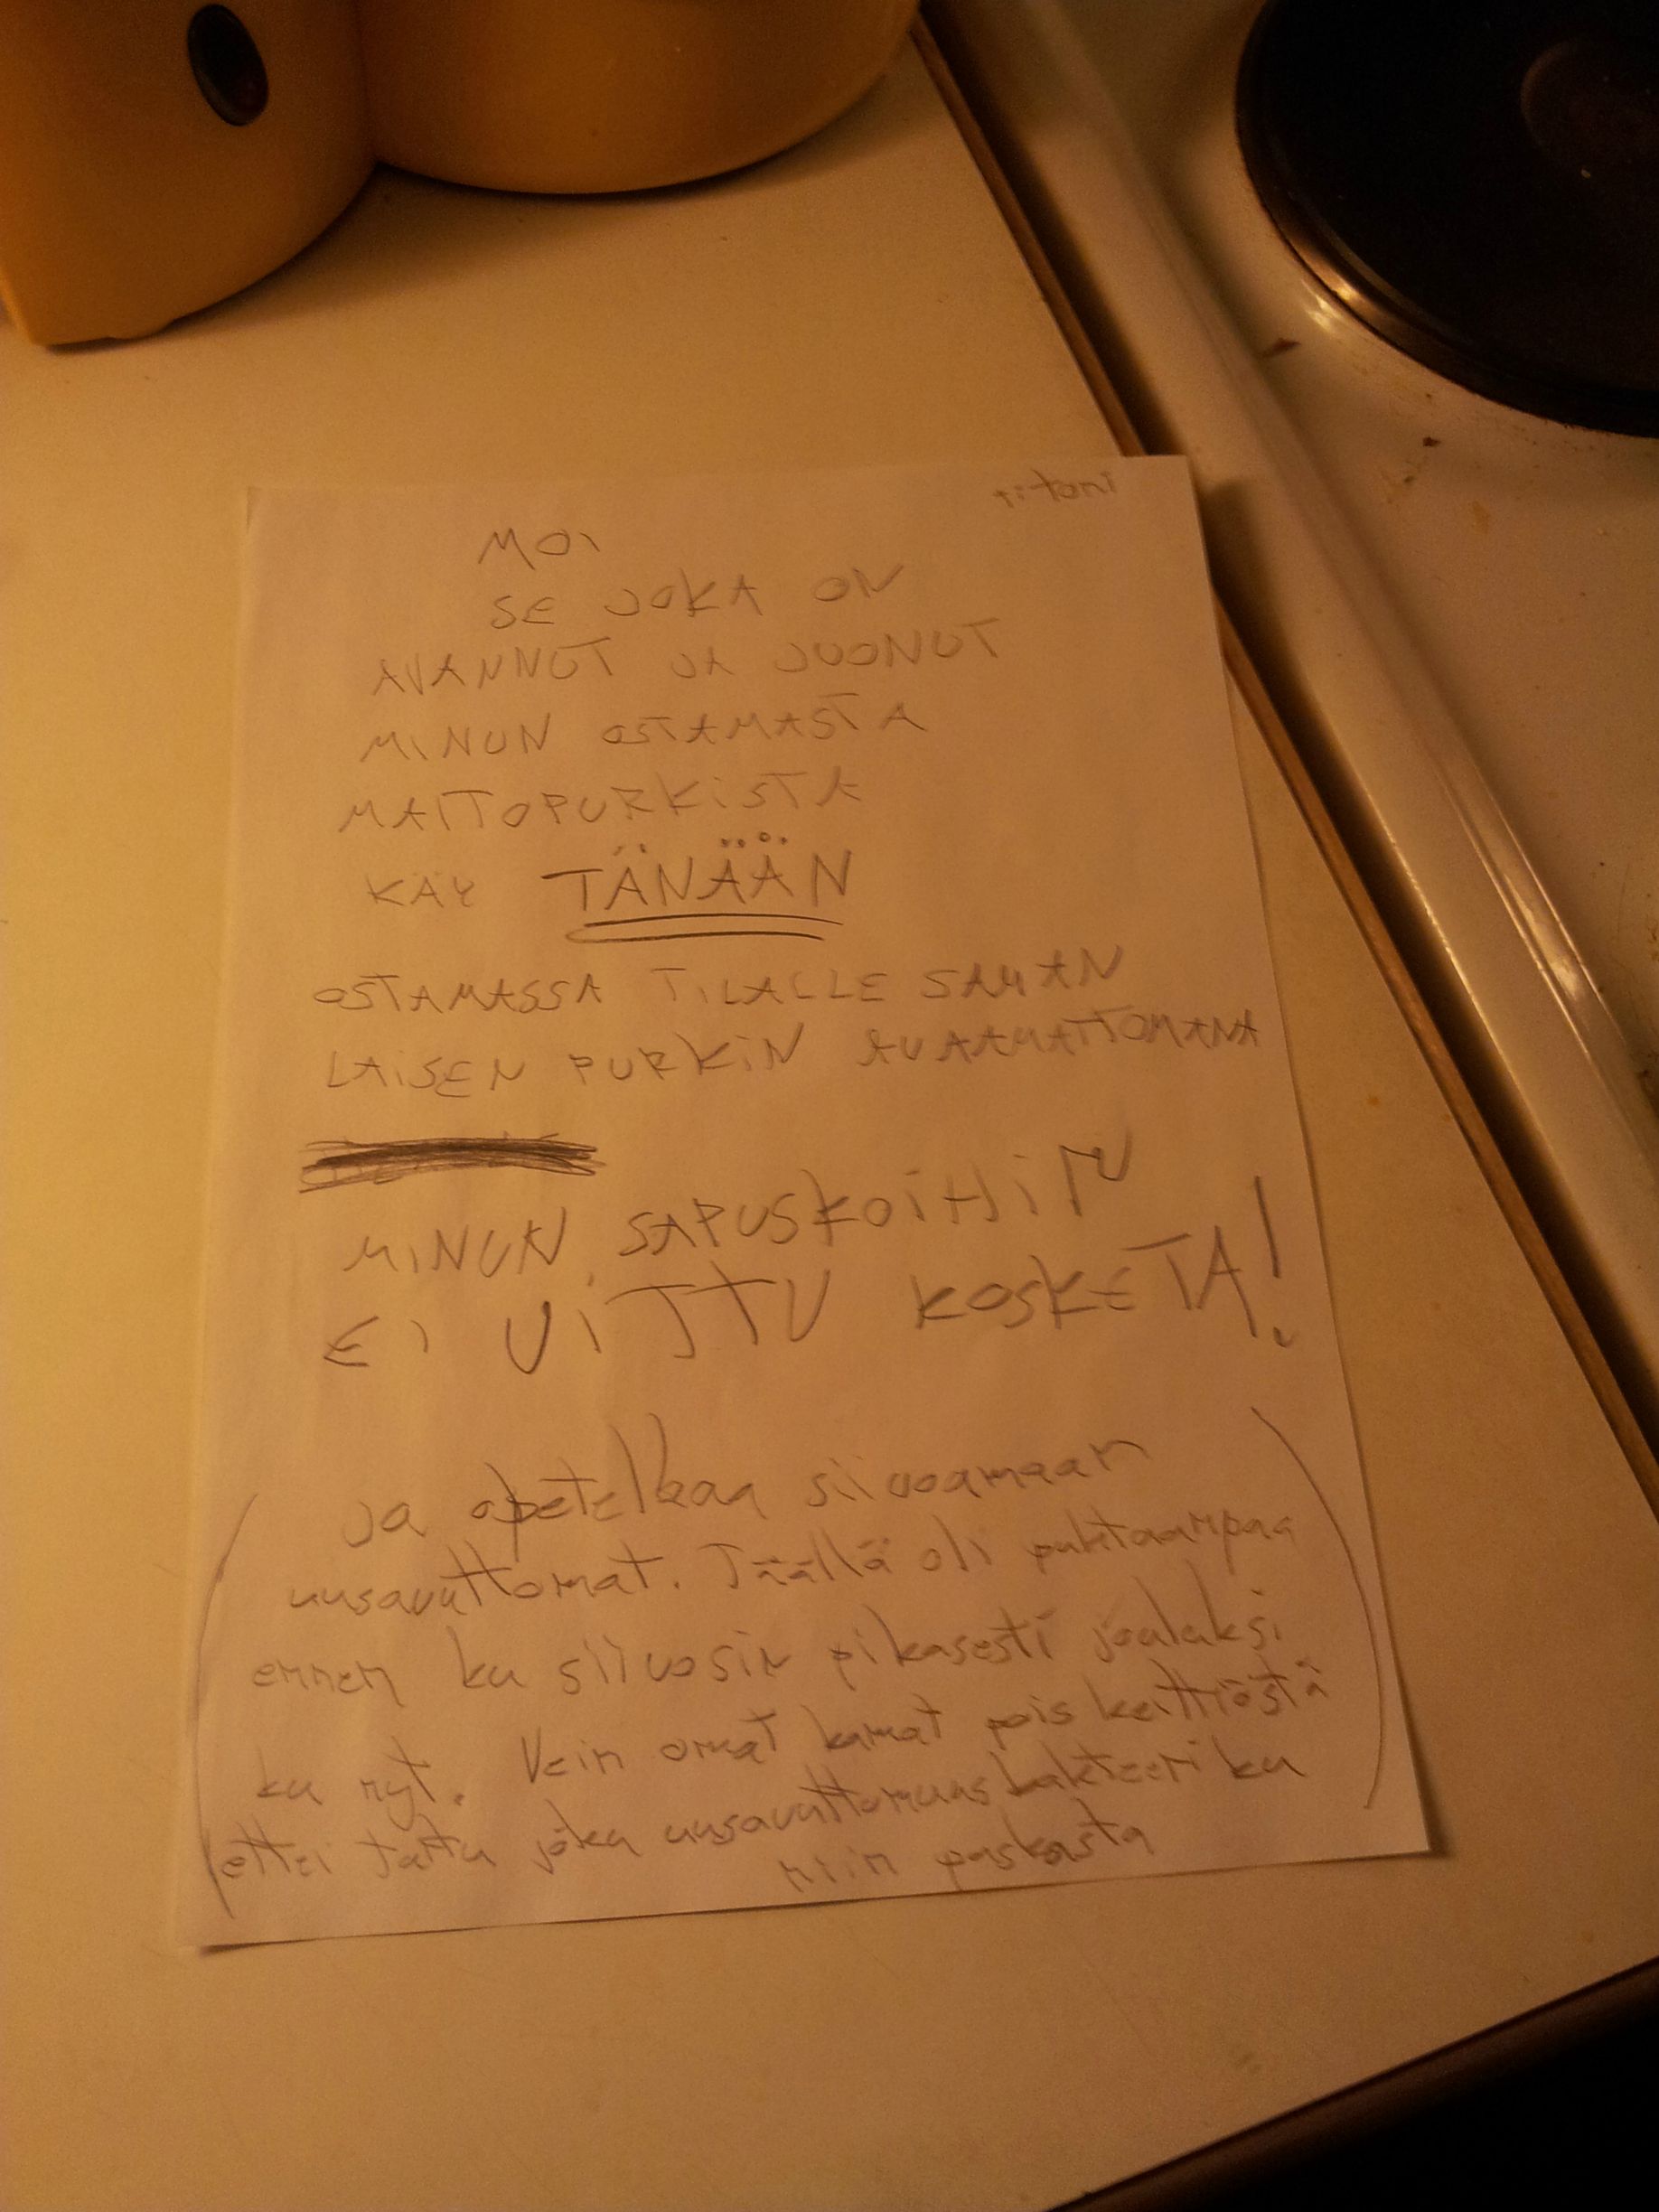 MOi
SE JOKA ON
AVANNUT JA JUONUT
MINUN OSTAMASTA
MAITOPURKiSTA
KÄY TÄNÄÄN
OSTAMASSA TiLALLE SAMAN
LAiSEN PURKiN AVAAMATTOMANA
MiNUN SAPUSKOiHiN
Ei ViTTU KOSKETA!
(Ja opetelkaa siivoamaan
uusavuttomat. Täällä oli puhtaampaa
ennen ku siivosin pikasesti jouluksi
ku nyt. Vein omat kamat pois keittiöstä
ettei tartu joku uusavuttomuus bakteeri ku
niin paskasta)